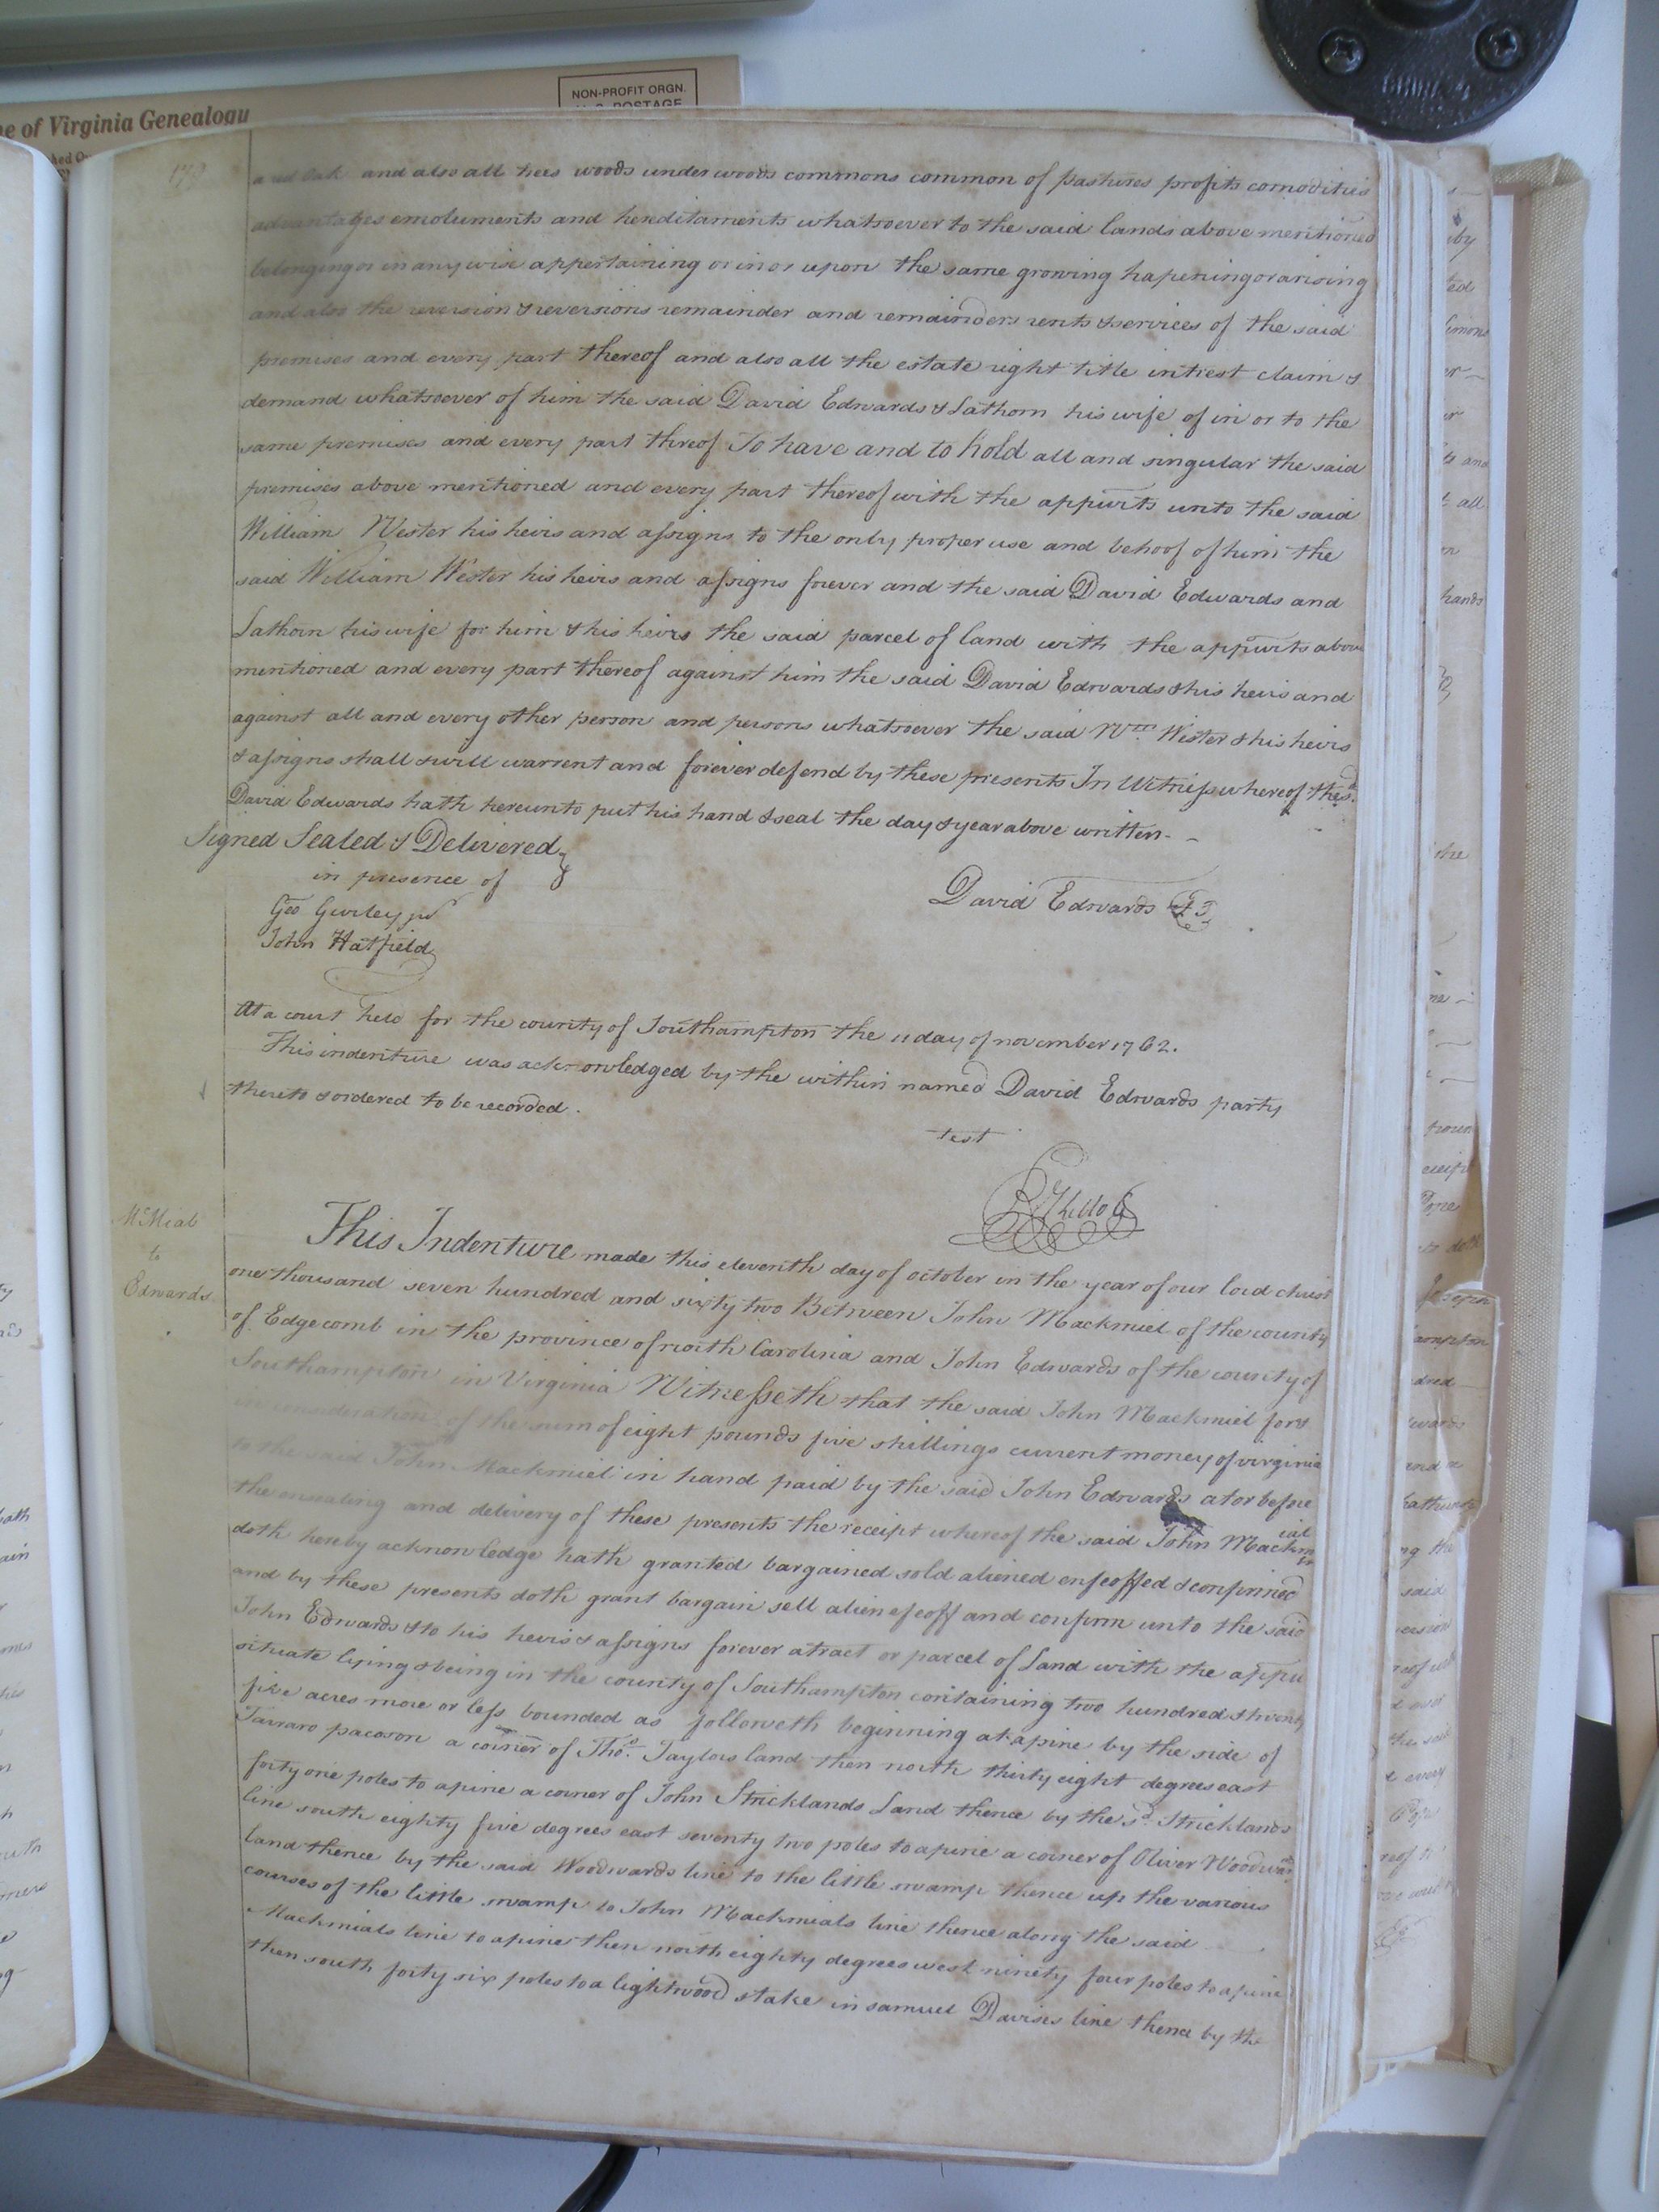 NON-PROFIT ORGN.
U.S. POSTAGE
e of Virginia Genealogy
a red oak and also all trees woods underwoods commons common of pastures profits comodities
advantages emoluments and hereditaments whatsoever to the said lands above mentioned
belonging or in any wise appertaining or in or upon the same growing hapening or arising
and also the reversion & reversions remainder and remainders rents & services of the said
premises and every part thereof and also all the estate right title intrest claim &
demand whatsoever of him the said David Edwards & Sathorn his wife of in or to the
same premises and every part threof To have and to hold all and singular the said
premises above mentioned and every part thereof with the appurts unto the said
William Wester his heirs and assigns to the only proper use and behoof of him the
said William Wester his heirs and assigns forever and the said David Edwards and
Sathorn his wife for him & his heirs the said parcel of land with the appurts above
mentioned and every part thereof against him the said David Edwards & his heirs and
against all and every other person and persons whatsoever the said Wm. Wester & his heirs
& assigns shall & will warrent and forever defend by these presents In Witness whereof the sd.
David Edwards hath hereunto put his hand & seal the day & year above written.
Signed Sealed & Delivered
in presence of
David Edwards
Geo Gurley
John Hatfield
At a court held for the county of Southampton the 11 day of november 1762.
This indenture was acknowledged by the within named David Edwards party
thereto & ordered to be recorded.
test
McMial
to
Edwards
This Indenture made this eleventh day of october in the year of our lord christ
one thousand seven hundred and sixty two Between John Mackmiel of the county
of Edgecomb in the province of north Carolina and John Edwards of the county of
Southampton in Virginia Witnesseth that the said John Mackmiel for &
in consideration of the sum of eight pounds five shillings current money of virginia
to the said John Mackmiel in hand paid by the said John Edwards at or before
the ensealing and delivery of these presents the receipt whereof the said John Mackmial
doth hereby acknowledge hath granted bargained sold aliened enfeoffed & confirmed
and by these presents doth grant bargain sell alien efeoff and confirm unto the said
John Edwards & to his heirs & assigns forever a tract or parcel of Land with the appu
situate lying & being in the county of Southampton containing two hundred & twenty
five acres more or less bounded as followeth beginning at a pine by the side of
Tarraro pacoson a corner of Thos. Taylors land then north thirty eight degrees east
forty one poles to a pine a corner of John Stricklands Land thence by the sd. Stricklands
line south eighty five degrees east seventy two poles to a pine a corner of Oliver Woodwards
land thence by the said Woodwards line to the little swamp thence up the various
courses of the little swamp to John Mackmials line thence along the said
Mackmials line to a pine then north eighty degrees west ninety four poles to a pine
then south forty six poles to a lightwood stake in samuel Davises line thence by the